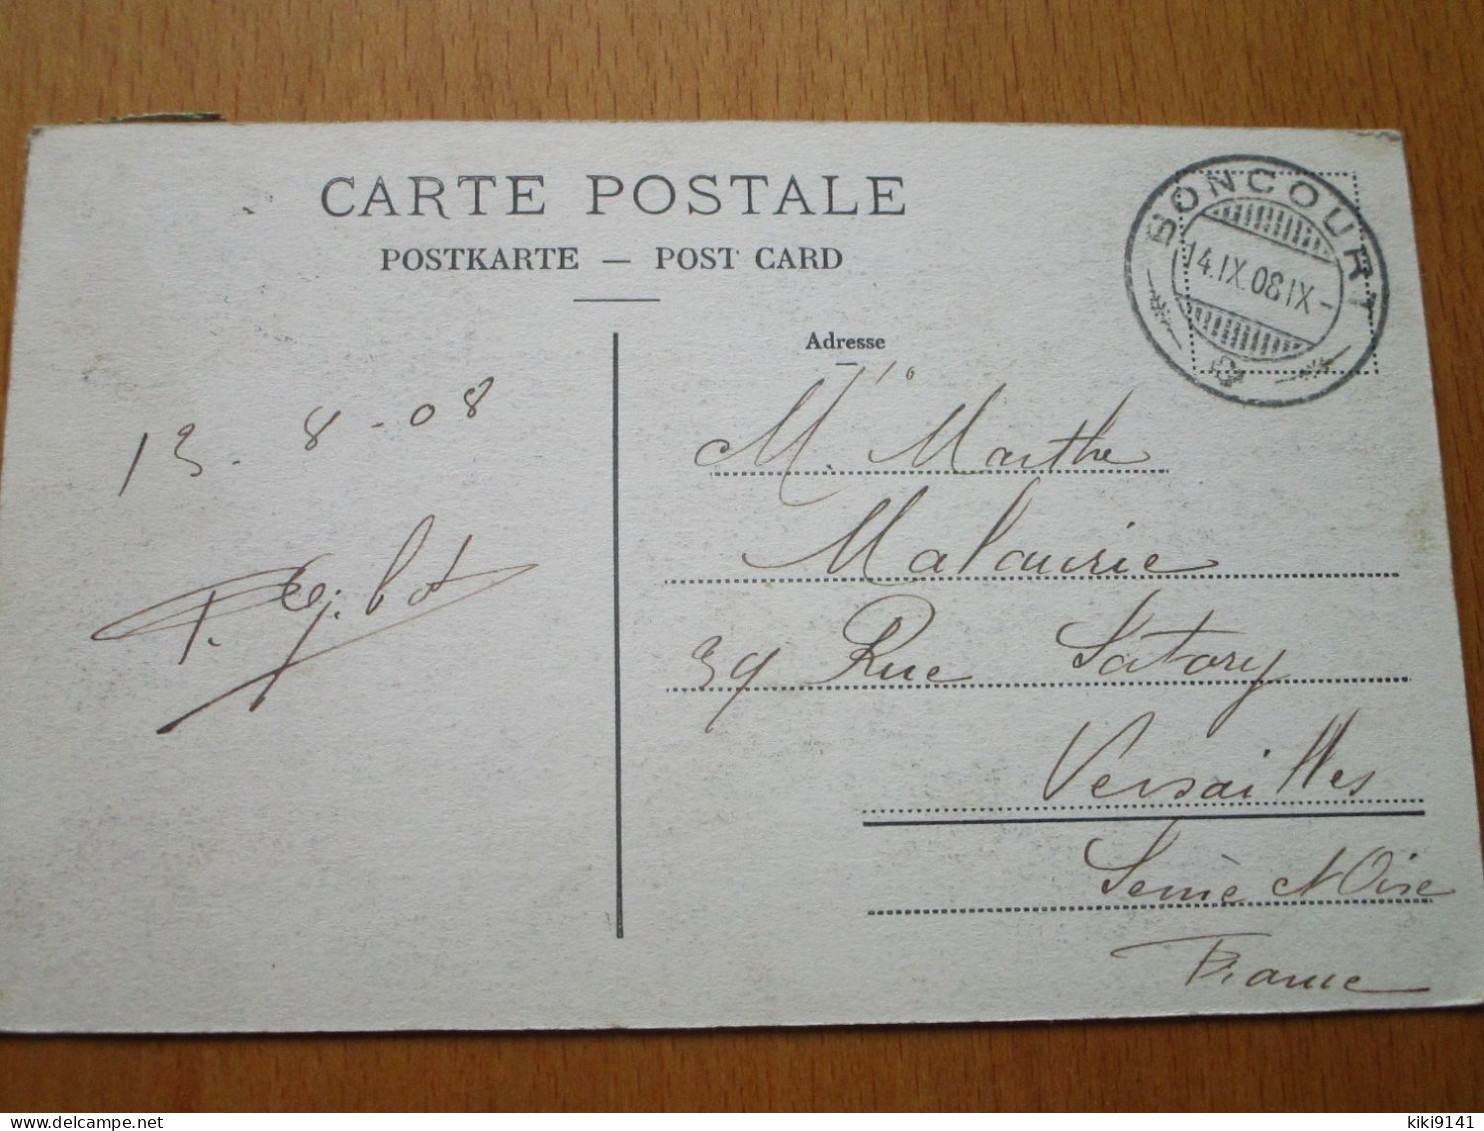 CARTE POSTALE
POSTKARTE — POST CARD
BONCOURT
14.IX.08 IX-
Adresse
13 - 8 - 08
Mlle Marthe
Malaurie
39 Rue Satory
Versailles
Seine et Oise
France
kiki9141